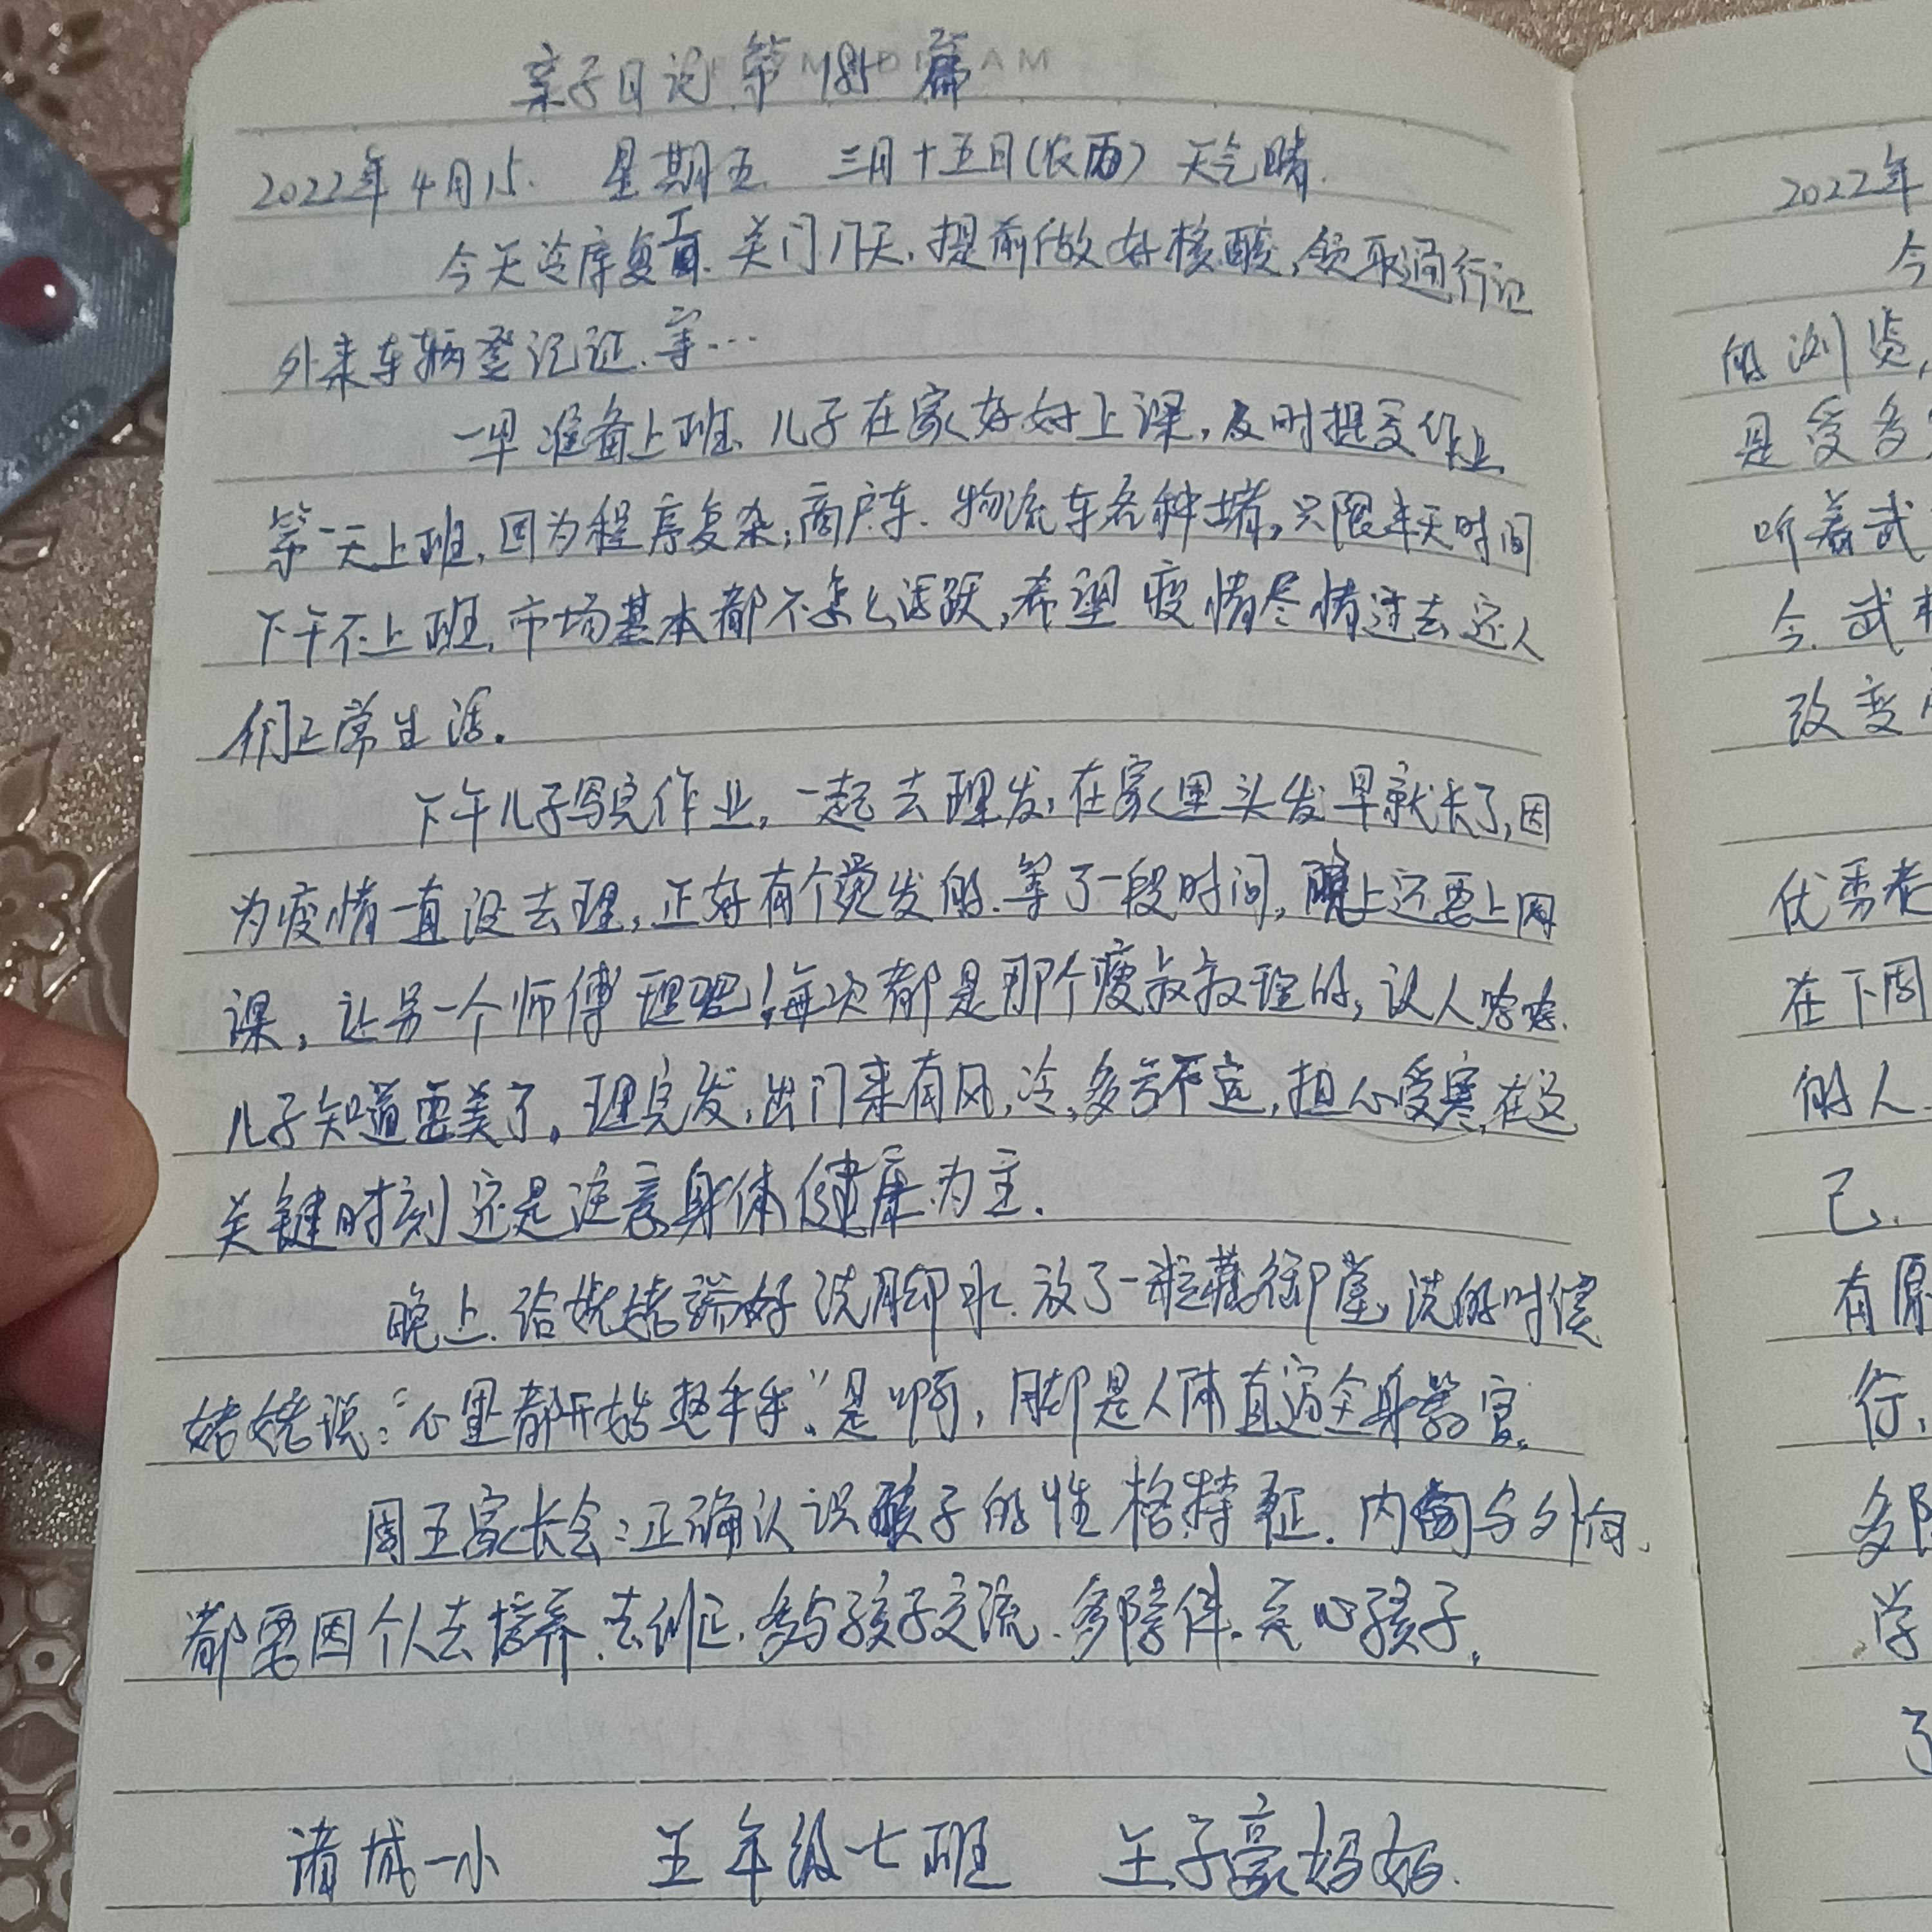 亲子日记 第185篇
2022年4月15. 星期五 三月十五日(农历) 天气晴.
今天冷库复工. 关门几天, 提前做好核酸, 领取通行证
外来车辆登记证. 等…
一早准备上班. 儿子在家好好上课, 及时提交作业
第一天上班, 因为程序复杂, 商户车. 物流车各种堵, 只限半天时间
下午不上班, 市场基本都不怎么活跃, 希望疫情尽情过去还人
们正常生活.
下午儿子写完作业, 一起去理发, 在家里头发早就长了, 因
为疫情一直没去理, 正好有个烫发的. 等了一段时间, 晚上还要上网
课, 让另一个师傅理吧! 每次都是那个瘦叔叔理的, 认人啥啥.
儿子知道要美了, 理完发, 出门来有风, 冷, 多亏不远, 担心受寒, 在这
关键时刻还是注意身体健康为主.
晚上. 给姥姥端好洗脚水. 放了一粒藏御堂, 洗的时候
姥姥说: “心里都开始热乎乎.” 是啊, 脚是人体直通全身器官.
周五家长会: 正确认识孩子的性格特征. 内向与外向.
都要因个人去培养. 去纠正. 多与孩子交流. 多陪伴. 关心孩子.
诸城一小 五年级七班 王子豪妈妈.
2022年
今
的浏览,
是受多
听着武
今. 武
改变
优秀老
在下周
的人
己.
有原
行,
多陪
学
了